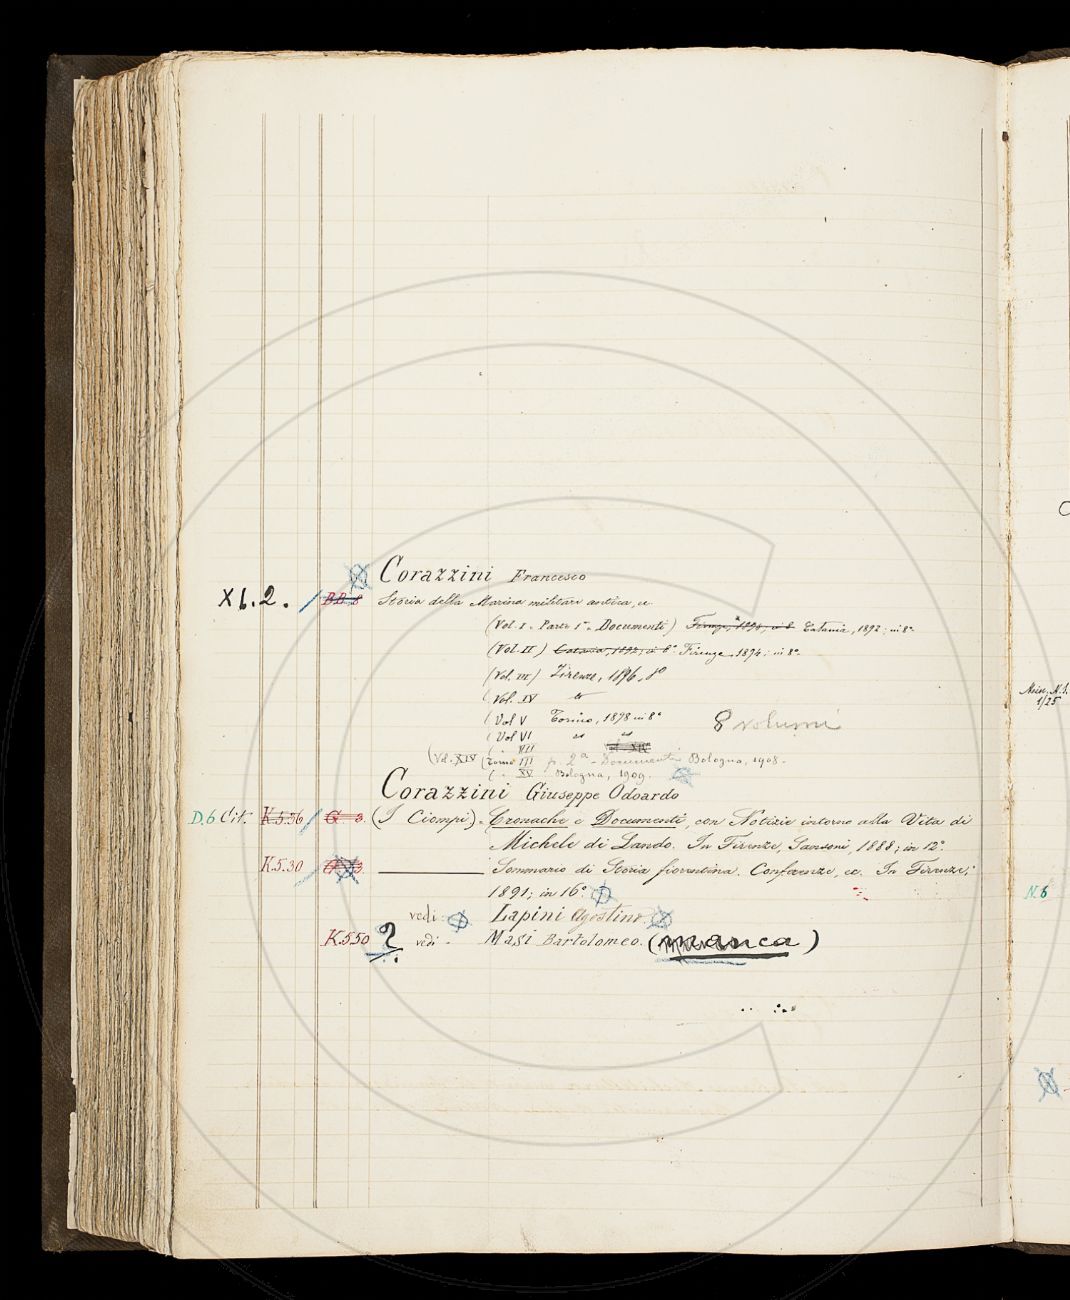 Corazzini Francesco
X b. 2. BB. 8 Storia della Marina militare antica, ec.
(Vol. I - Parte 1ª - Documenti) Firenze, 1898, in 8 Catania, 1892; in 8º
(Vol. II) Catania, 1892; in 8º Firenze, 1894; in 8º
(Vol. III) Firenze, 1896, 8º
(Vol. IV
(Vol V Torino, 1898 in 8º 8 volumi
(Vol VI
( " VII
(Vol. XIV (Tomo III p. 2ª - Documenti Bologna, 1908.
( " XV Bologna, 1909.
Corazzini Giuseppe Odoardo
D.6 Cit. K.5.36 G 3. (I Ciompi). Cronache e Documenti, con Notizie intorno alla Vita di
Michele di Lando. In Firenze, Sansoni, 1888; in 12º
K.5.30 Sommario di Storia fiorentina. Conferenze, ec. In Firenze;
1891; in 16º
vedi: Lapini Agostino.
K550 ? vedi - Masi Bartolomeo. (manca)
Misc. N. 1.
1/25
N. 8